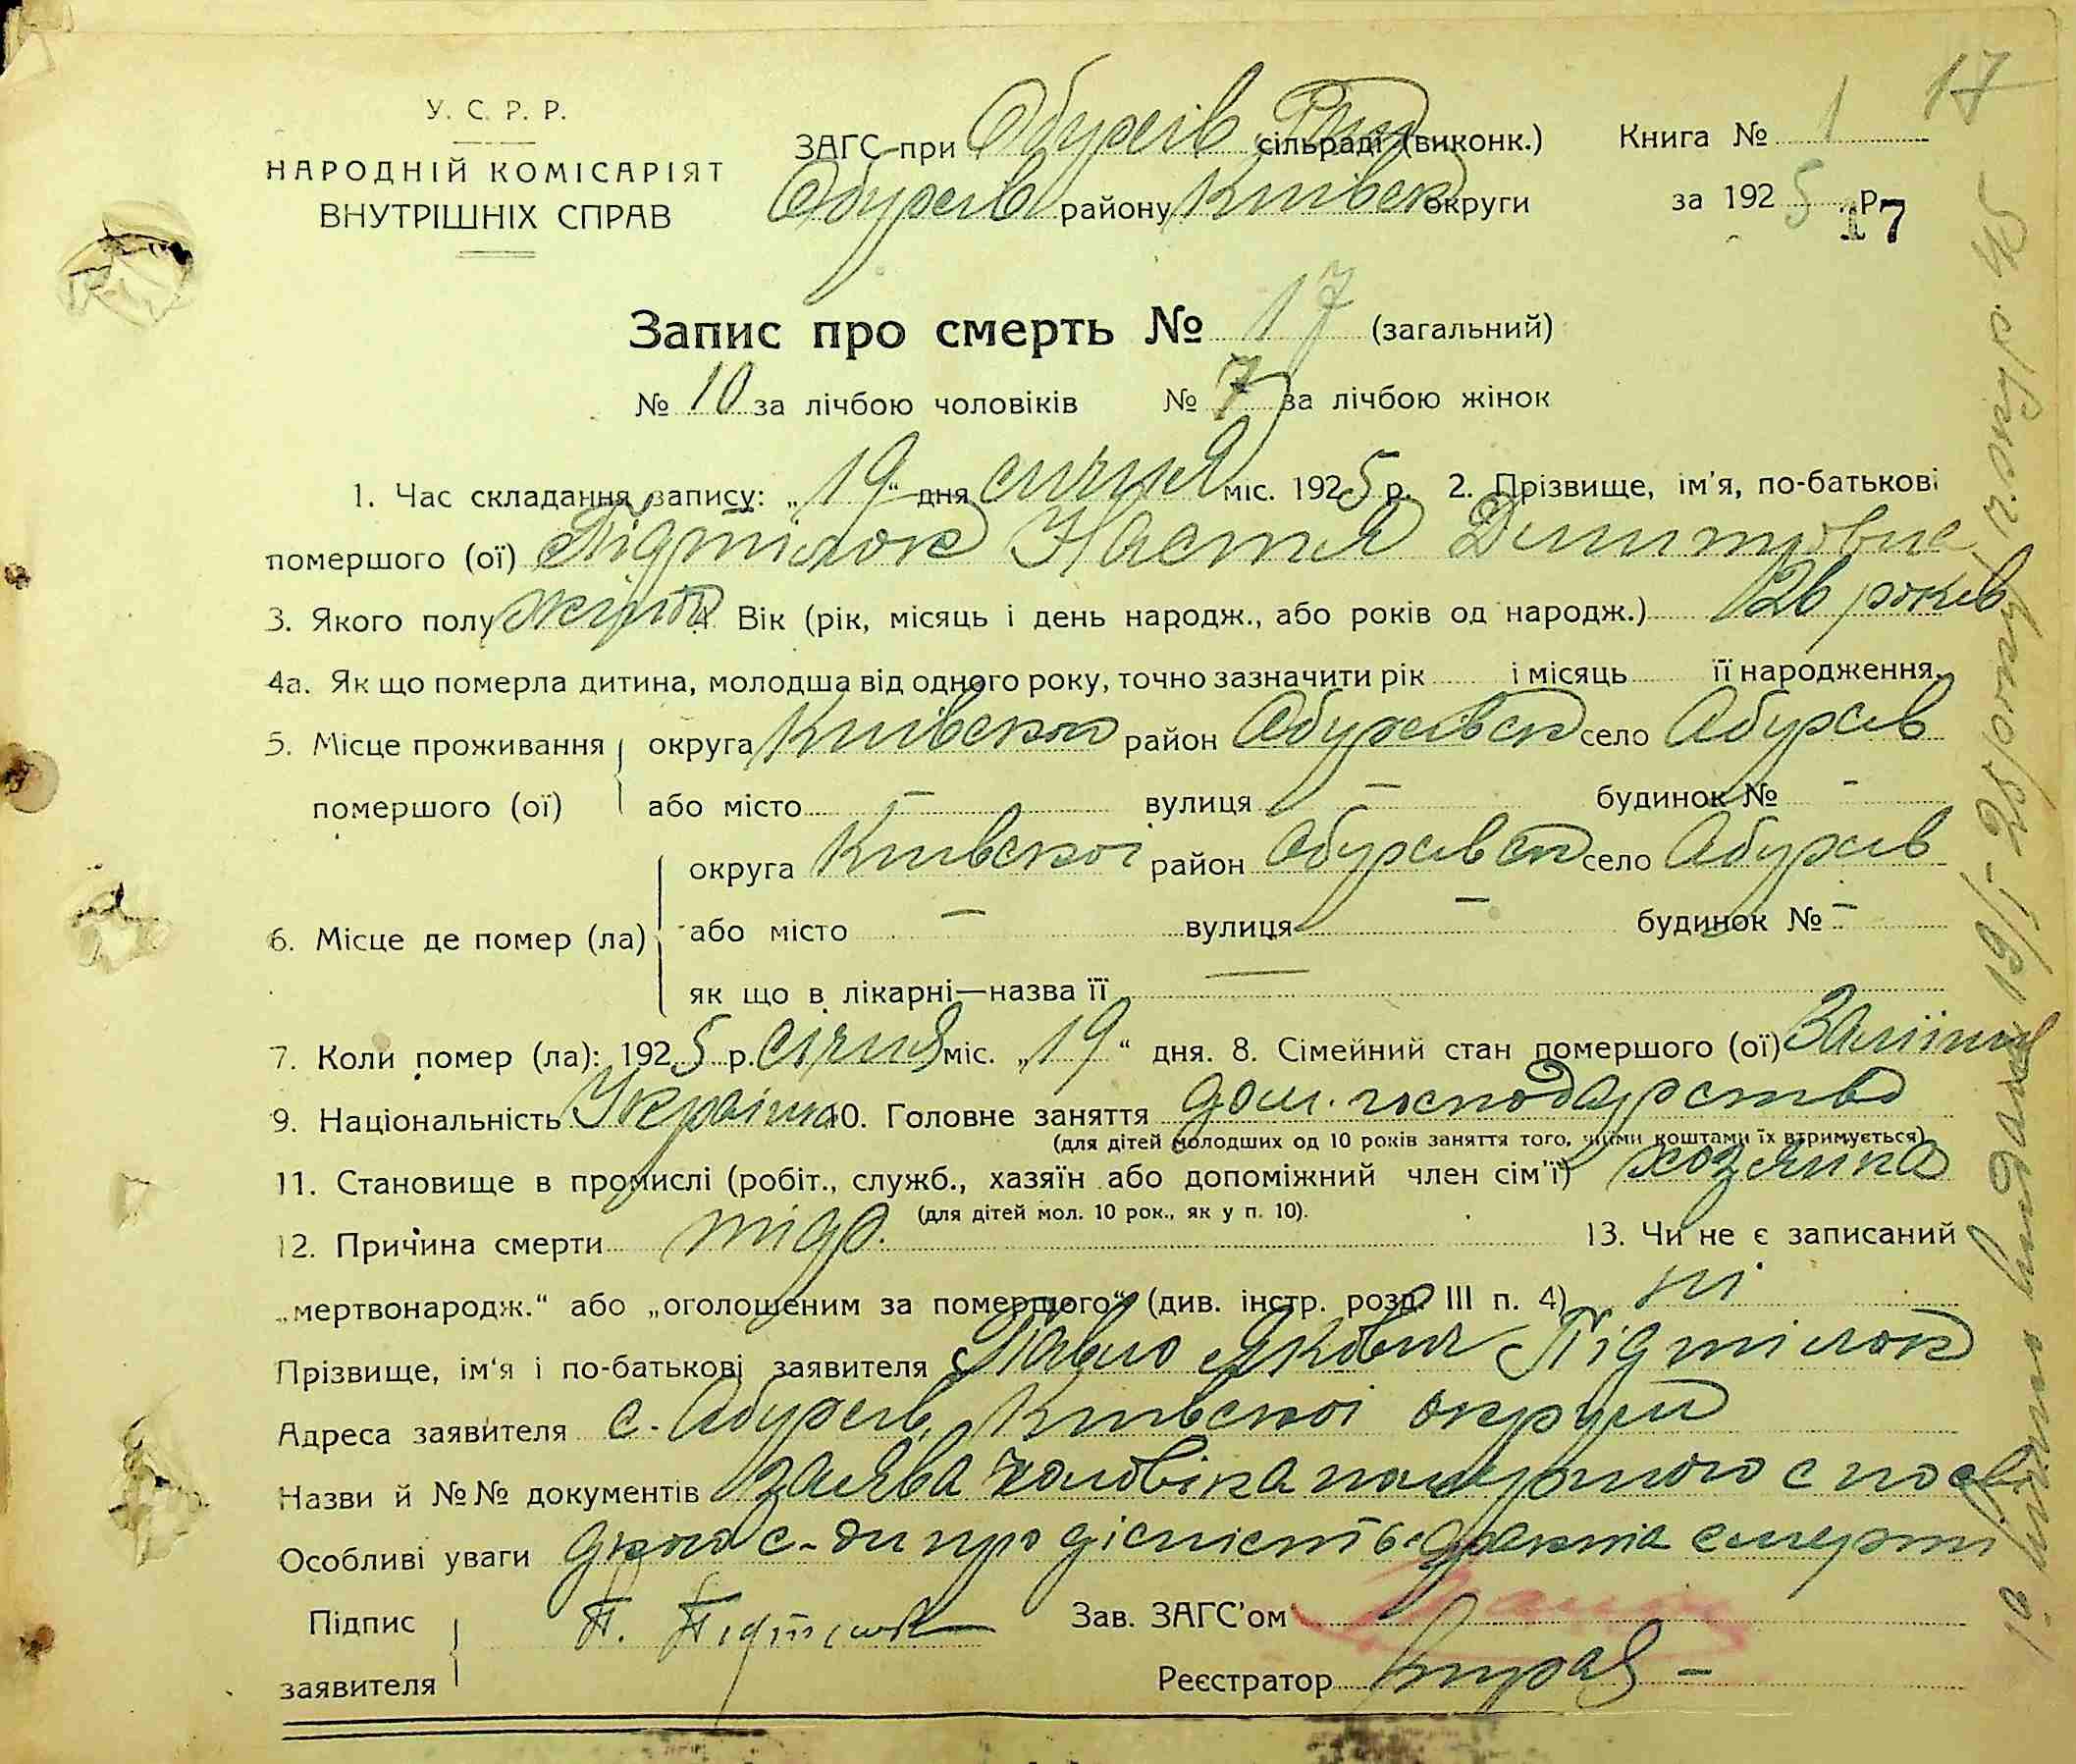 17
У. С. Р. Р.
НАРОДНІЙ КОМІСАРІЯТ
ВНУТРІШНІХ СПРАВ
ЗАГС при Обухів сільраді (виконк.)
Обухів району Київськ округи
Книга № 1
за 1925 р.
17
Запис про смерть № 17 (загальний)
№ 10 за лічбою чоловіків № 7 за лічбою жінок
1. Час складання запису: „19“ дня січня міс. 1925 р. 2. Прізвище, ім'я, по-батькові
помершого (ої) Підтілок Настя Димитровна
3. Якого полу жіноч 4. Вік (рік, місяць і день народж., або років од народж.) 26 років
4а. Як що померла дитина, молодша від одного року, точно зазначити рік і місяць її народження.
5. Місце проживання помершого (ої) округа Київської район Обухівськ село Абухів
або місто — вулиця — будинок № -
6. Місце де помер (ла) округа Київскої район Обухівськ село Абухів
або місто — вулиця — будинок № -
як що в лікарні—назва її —
7. Коли помер (ла): 1925 р. січня міс. „19“ дня. 8. Сімейний стан помершого (ої)
9. Національність Україн. 10. Головне заняття дом. господарство
(для дітей молодших од 10 років заняття того, чиїми коштами їх втримується)
11. Становище в промислі (робіт., служб., хазяїн або допоміжний член сім'ї) хозяйка
(для дітей мол. 10 рок., як у п. 10).
12. Причина смерти 13. Чи не є записаний
„мертвонародж.“ або „оголошеним за помершого“ (див. інстр. розд. III п. 4) ні
Прізвище, ім'я і по-батькові заявителя Павло Якович Підтілок
Адреса заявителя с. Абухів, Київскої округи
Назви й №№ документів заява чоловіка помершого с посві
Особливі уваги дкою с-ди про дісність факта смерти
Підпис заявителя П. Підтілок
Зав. ЗАГС'ом
Реєстратор